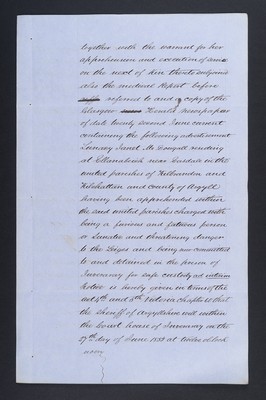 together with the warrant for her
apprehension and execution of same
on the next of kin thereto subjoined
also the medical Report before
referred to and a copy of the
Glasgow Herald newspaper
of date twenty second June current
containing the following advertisement
Lunacy Janet McDougall residing
at Ellanabeich near Easdale in the
united parishes of Kilbrandon and
Kilchattan and County of Argyll
having been apprehended within
the said united parishes charged with
being a furious and fatuous person
or Lunatic and threatening danger
to the Lieges and being now committed
to and detained in the prison of
Inveraray for safe custody ad interim
Notice is hereby given in terms of the
act 4th and 5th Victoria chapter 60 that
the Sheriff of Argyllshire will within
the Court house of Inveraray on the
27th day of June 1855 at twelve oClock
noon